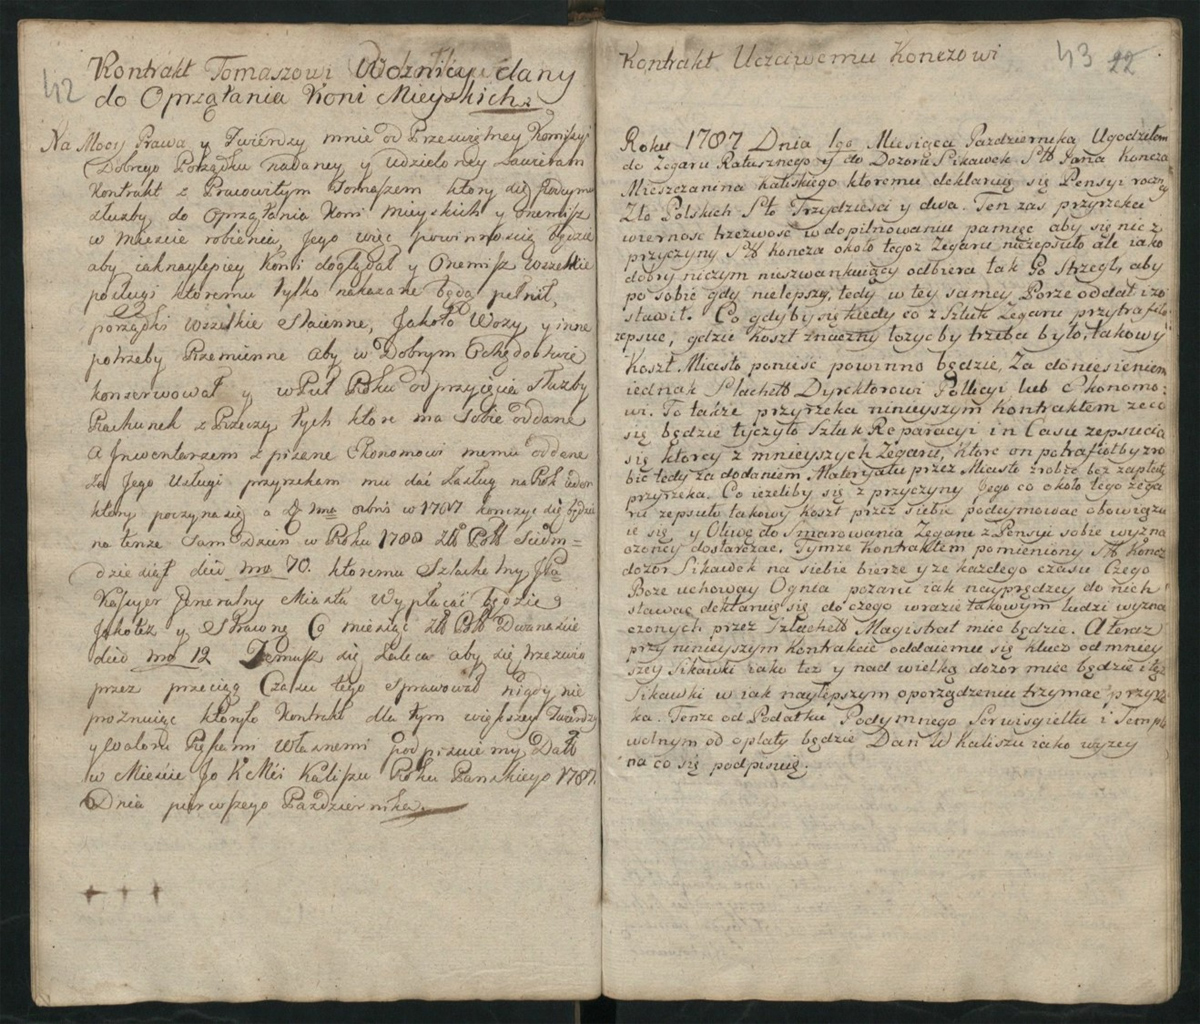 42
Kontrakt Tomaszowi Woźnicy dany
do Oprzątania Koni Mieyskich
Na Mocy Prawa y Zwierzch mnie od Prześwietney Kommissyi
Dobrego Porządku nadaney y udzieloney zawieram
Kontrakt z Pracowitym Tomaszem który się
służby do Oprzątania Koni Mieyskich y onemisz
w Mieście robienia, Jego więc powinnością będzie
aby iaknaylepiey Koni doglądał y Onemisz wszelkie
posługi ktoremu tylko nakazane będą pełnił,
porządki wszelkie Staienne, Jakoto Wozy y inne
potrzeby Przemienne aby w Dobrym Ochędostwie
konserwował y w Puł Roku od przyięcia Służby
Rachunek z Rzeczy tych ktore ma sobie oddane
a Jnwentarzem spisane Ekonomowi memu oddane
Za Jego Usługi przyrzekam mu dać Zasług na Rok
ktory poczyna się a 1787 konczyć się będzie
na tenże Sam Dzień w Roku 1788 Zł Pol Siedm-
dziesiąt dico no 70. ktoremu Szlachetny JPan
Kassyer Jeneralny Miasta Wypłacać będzie
Jakoteż y Strawne Co miesiąc Zł Pol Dwanaście
dico no 12 Temuż się zaleca aby się trzeźwo
przez przeciąg Czasu tego sprawował nigdy nie
prożnuiąc Kontrakt dla tym większey
y waloru Rękami Własnemi podpisuiemy Datt
w Mieście Jo K Mci Kaliszu Roku Pańskiego 1787.
Dnia pierwszego Pazdziernika.
+ + +
Kontrakt Uczciwemu Konczowi
43 22
Roku 1787 Dnia 1go Miesiąca Pazdziernika Ugodziłem
do Zegaru Ratusznego y do Dozoru Sikawek Jana Koncza
Mieszczanina Kaliskiego ktoremu deklaruię się Pensyi roczney
Zło Polskich Sto Trzydzieści y dwa. Ten zaś przyrzeka
wierność trzezwość w dopilnowaniu pamięć aby się nic z
przyczyny Koncza około tegoż Zegaru niezepsuło ale iako
dobry niczym nieszwankuiący odbiera tak Go Strzegł, aby
po sobie gdy nielepszy, tedy w tey samey Porze oddał i zo
stawił. Co gdyby się kiedy co z Sztuk Zegaru przytrafiło
zepsuc, gdzie koszt znaczny łozyc by trzeba było, takowy
Koszt Miasto poniesć powinno będzie, Za doniesieniem
iednak Dyrektorowi Pollicyi lub Ekonomo:
wi. To takze przyrzeka ninieyszym Kontraktem ze co
się będzie tyczyło Sztuk Reparacyi in Casu zepsucia
się ktorey z mnieyszych Zegaru, ktore on potrafiłby zro
bic tedy za dodaniem Materyału przez Miasto zrobic bez zapłaty
przyrzeka. Co iezeliby się z przyczyny Jego co około tego zega
ru zepsuło takowy koszt przez siebie podeymować obowiązu
ie się y Oliwę do Smarowania Zegaru z Pensyi sobie wyzna
czoney dostarczac. Tymze Kontraktem pomieniony Koncz
dozor Sikawek na siebie bierze y ze kazdego czasu Czego
Boze uchoway Ognia pozaru iak nayprędzey do nich
stawać deklaruie się do czego w razie takowym ludzi wyzna
czonych przez Szlachett Magistrat miec będzie. A teraz
przy ninieyszym Kontrakcie oddaiemu się klucz od mniey
szey Sikawki iako tez y nad wielką dozor miec będzie i tęż
Sikawki w iak naylepszym oporządzeniu trzymać przyrze
ka. Tenze od Podatku Podymnego Serwisgieltu i Temp
wolnym od opłaty będzie Dan W Kaliszu iako wyzey
na co się podpisuię.